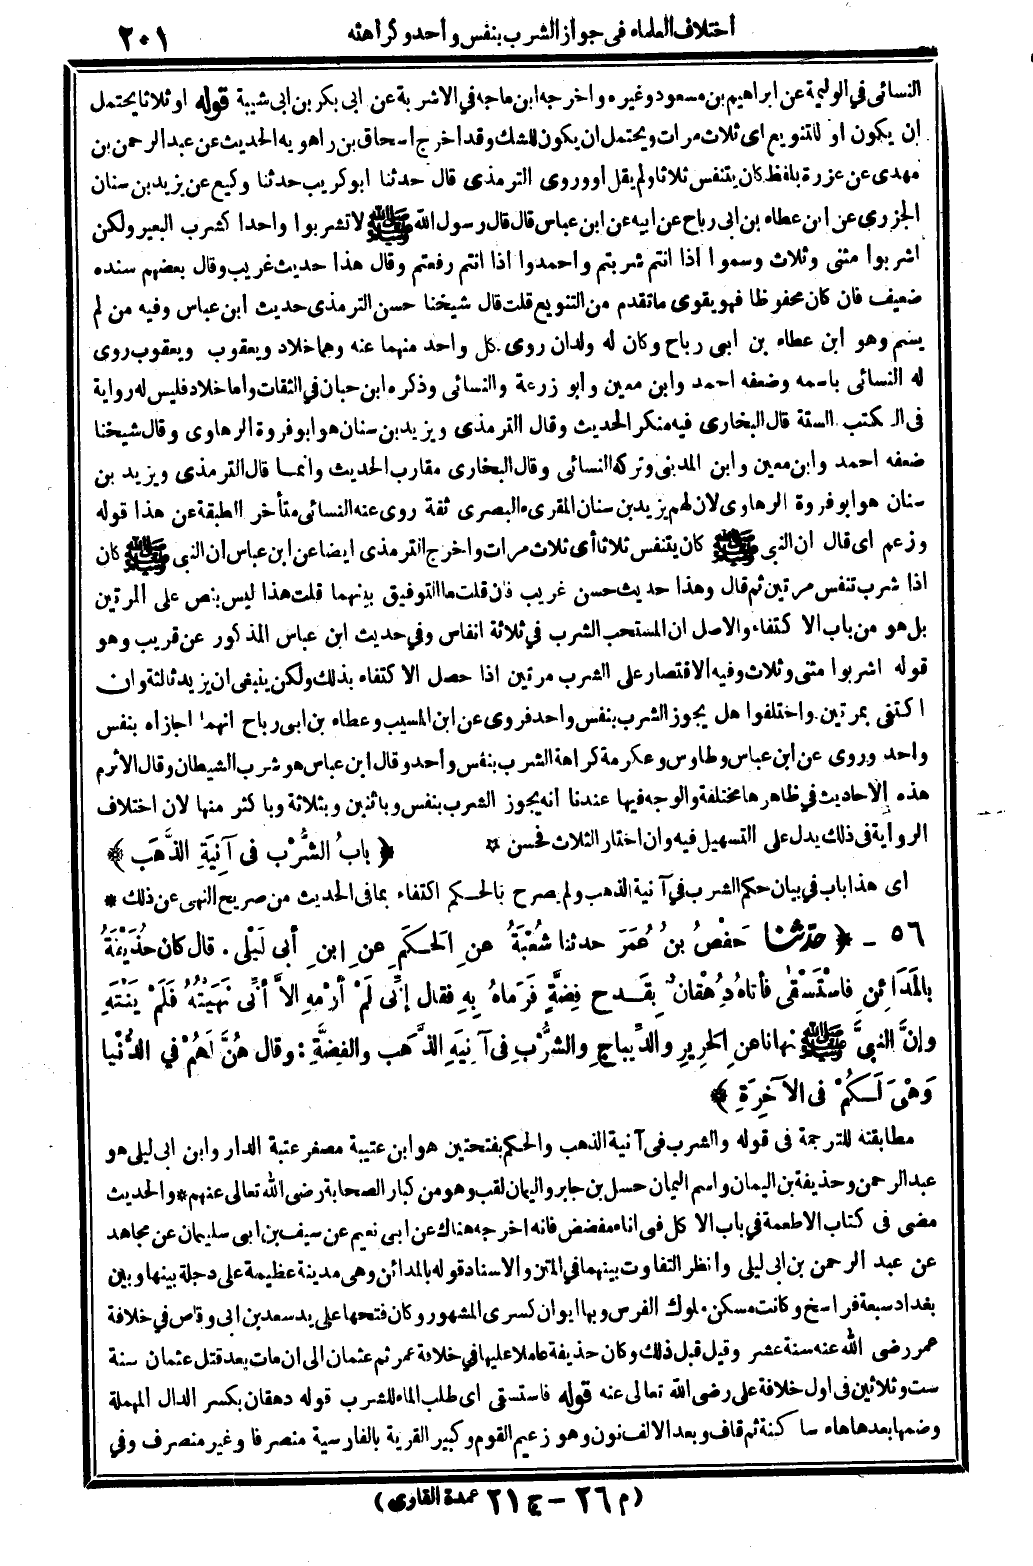 اختلاف العلماء فى جواز الشرب بنفس واحد وكراهته ٢٠١
النسائى فى الوليمة عن ابراهيم بن مسعود وغيره واخرجه ابن ماجه فى الاشربة عن ابى بكر بن ابى شيبة قوله او ثلاثا يحتمل
ان يكون او للتنويع اى ثلاث مرات ويحتمل ان يكون للشك وقد اخرج اسحاق بن راهويه الحديث عن عبد الرحمن بن
مهدى عن عزرة بلفظ كان يتنفس ثلاثا ولم يقل او وروى الترمذى قال حدثنا ابو كريب حدثنا وكيع عن يزيد بن سنان
الجزرى عن ابن عطاء بن ابى رباح عن ابيه عن ابن عباس قال قال رسول الله ﷺ لا تشربوا واحدا كشرب البعير ولكن
اشربوا مثنى وثلاث وسموا اذا انتم شربتم واحمدوا اذا انتم رفعتم وقال هذا حديث غريب وقال بعضهم سنده
ضعيف فان كان محفوظا فهو يقوى ما تقدم من التنويع قلت قال شيخنا حسن الترمذى حديث ابن عباس وفيه من لم
يسم وهو ابن عطاء بن ابى رباح وكان له ولدان روى كل واحد منهما عنه وهما خلاد ويعقوب ويعقوب روى
له النسائى باسمه وضعفه احمد وابن معين وأبو زرعة والنسائى وذكره ابن حبان فى الثقات وأما خلاد فليس له رواية
فى الكتب الستة قال البخارى فيه منكر الحديث وقال الترمذى ويزيد بن سنان هو ابو فروة الرهاوى وقال شيخنا
ضعفه احمد وابن معين وابن المدينى وتركه النسائى وقال البخارى مقارب الحديث وانما قال الترمذى ويزيد بن
سنان هو ابو فروة الرهاوى لان لهم يزيد بن سنان المقرىء البصرى ثقة روى عنه النسائى متأخر الطبقة عن هذا قوله
وزعم اى قال ان النبى ﷺ كان يتنفس ثلاثا أى ثلاث مرات واخرج الترمذى ايضا عن ابن عباس ان النبى ﷺ كان
اذا شرب تنفس مرتين ثم قال وهذا حديث حسن غريب فان قلت ما التوفيق بينهما قلت هذا ليس بنص على المرتين
بل هو من باب الاكتفاء والاصل ان المستحب الشرب فى ثلاثة انفاس وفى حديث ابن عباس المذكور عن قريب وهو
قوله اشربوا مثنى وثلاث وفيه الاقتصار على الشرب مرتين اذا حصل الاكتفاء بذلك ولكن ينبغى ان يزيد ثالثة وان
اكتفى بمرتين واختلفوا هل يجوز الشرب بنفس واحد فروى عن ابن المسيب وعطاء بن ابى رباح انهما اجازاه بنفس
واحد وروى عن ابن عباس وطاوس وعكرمة كراهة الشرب بنفس وأحد وقال ابن عباس هو شرب الشيطان وقال الأثرم
هذه الأحاديث فى ظاهرها مختلفة والوجه فيها عندنا أنه يجوز الشرب بنفس وباثنين وبثلاثة وباكثر منها لان اختلاف
الرواية فى ذلك يدل على التسهيل فيه وان اختار الثلاث فحسن * ﴿ بابُ الشُّرْب فى آنِيَةِ الذَّهَب ﴾
اى هذا باب فى بيان حكم الشرب فى آنية الذهب ولم يصرح بالحكم اكتفاء بما فى الحديث من صريح النهى عن ذلك *
٥٦ - ﴿ حدّثنا حَفْصُ بنُ عُمَرَ حدثنا شُعْبَةُ عنِ الحَكَمِ عنِ ابنِ أبى لَيْلى . قال كان حُذَيْفَةُ
بالمَدَائِنِ فاسْتَسْقٰى فأتاهُ دِهْقانٌ بِقَدح فِضَّةٍ فَرَماهُ بِهِ فقال إنِّى لَمْ أرْمِهِ إلاَّ أنِّى نَهَيْتُهُ فَلَمْ يَنْتَهِ
وإنَّ النبىَّ ﷺ نهانا عنِ الحَرِيرِ والدِّيباجِ والشرْبِ فى آنِيَةِ الذَّهَب والفِضَّةِ : وقال هُنَّ لَهُمْ فى الدُّنْيا
وَهْىَ لَكُمْ فى الآخِرَةِ ﴾
مطابقته للترجمة فى قوله والشرب فى آنية الذهب والحكم بفتحتين هو ابن عتيبة مصغر عتبة الدار وابن ابى ليلى هو
عبد الرحمن وحذيفة بن اليمان واسم اليمان حسل بن جابر واليمان لقب وهو من كبار الصحابة رضى الله تعالى عنهم * والحديث
مضى فى كتاب الاطعمة فى باب الاكل فى اناء مفضض فانه اخرجه هناك عن ابى نعيم عن سيف بن ابى سليمان عن مجاهد
عن عبد الرحمن بن ابى ليلى وانظر التفاوت بينهما فى المتن والاسناد قوله بالمدائن وهى مدينة عظيمة على دجلة بينها وبين
بغداد سبعة فراسخ وكانت مسكن ملوك الفرس وبها ايوان كسرى المشهور وكان فتحها على يد سعد بن ابى وقاص فى خلافة
عمر رضى الله عنه سنة عشر وقيل قبل ذلك وكان حذيفة عاملا عليها فى خلافة عمر ثم عثمان الى ان مات بعد قتل عثمان سنة
ست وثلاثين فى اول خلافة على رضى الله تعالى عنه قوله فاستسقى اى طلب الماء للشرب قوله دهقان بكسر الدال المهملة
وضمها بعدها هاء ساكنة ثم قاف وبعد الالف نون وهو زعيم القوم وكبير القرية بالفارسية منصرفا وغير منصرف وفى
(م ٢٦ - ج ٢١ عمدة القاوى)